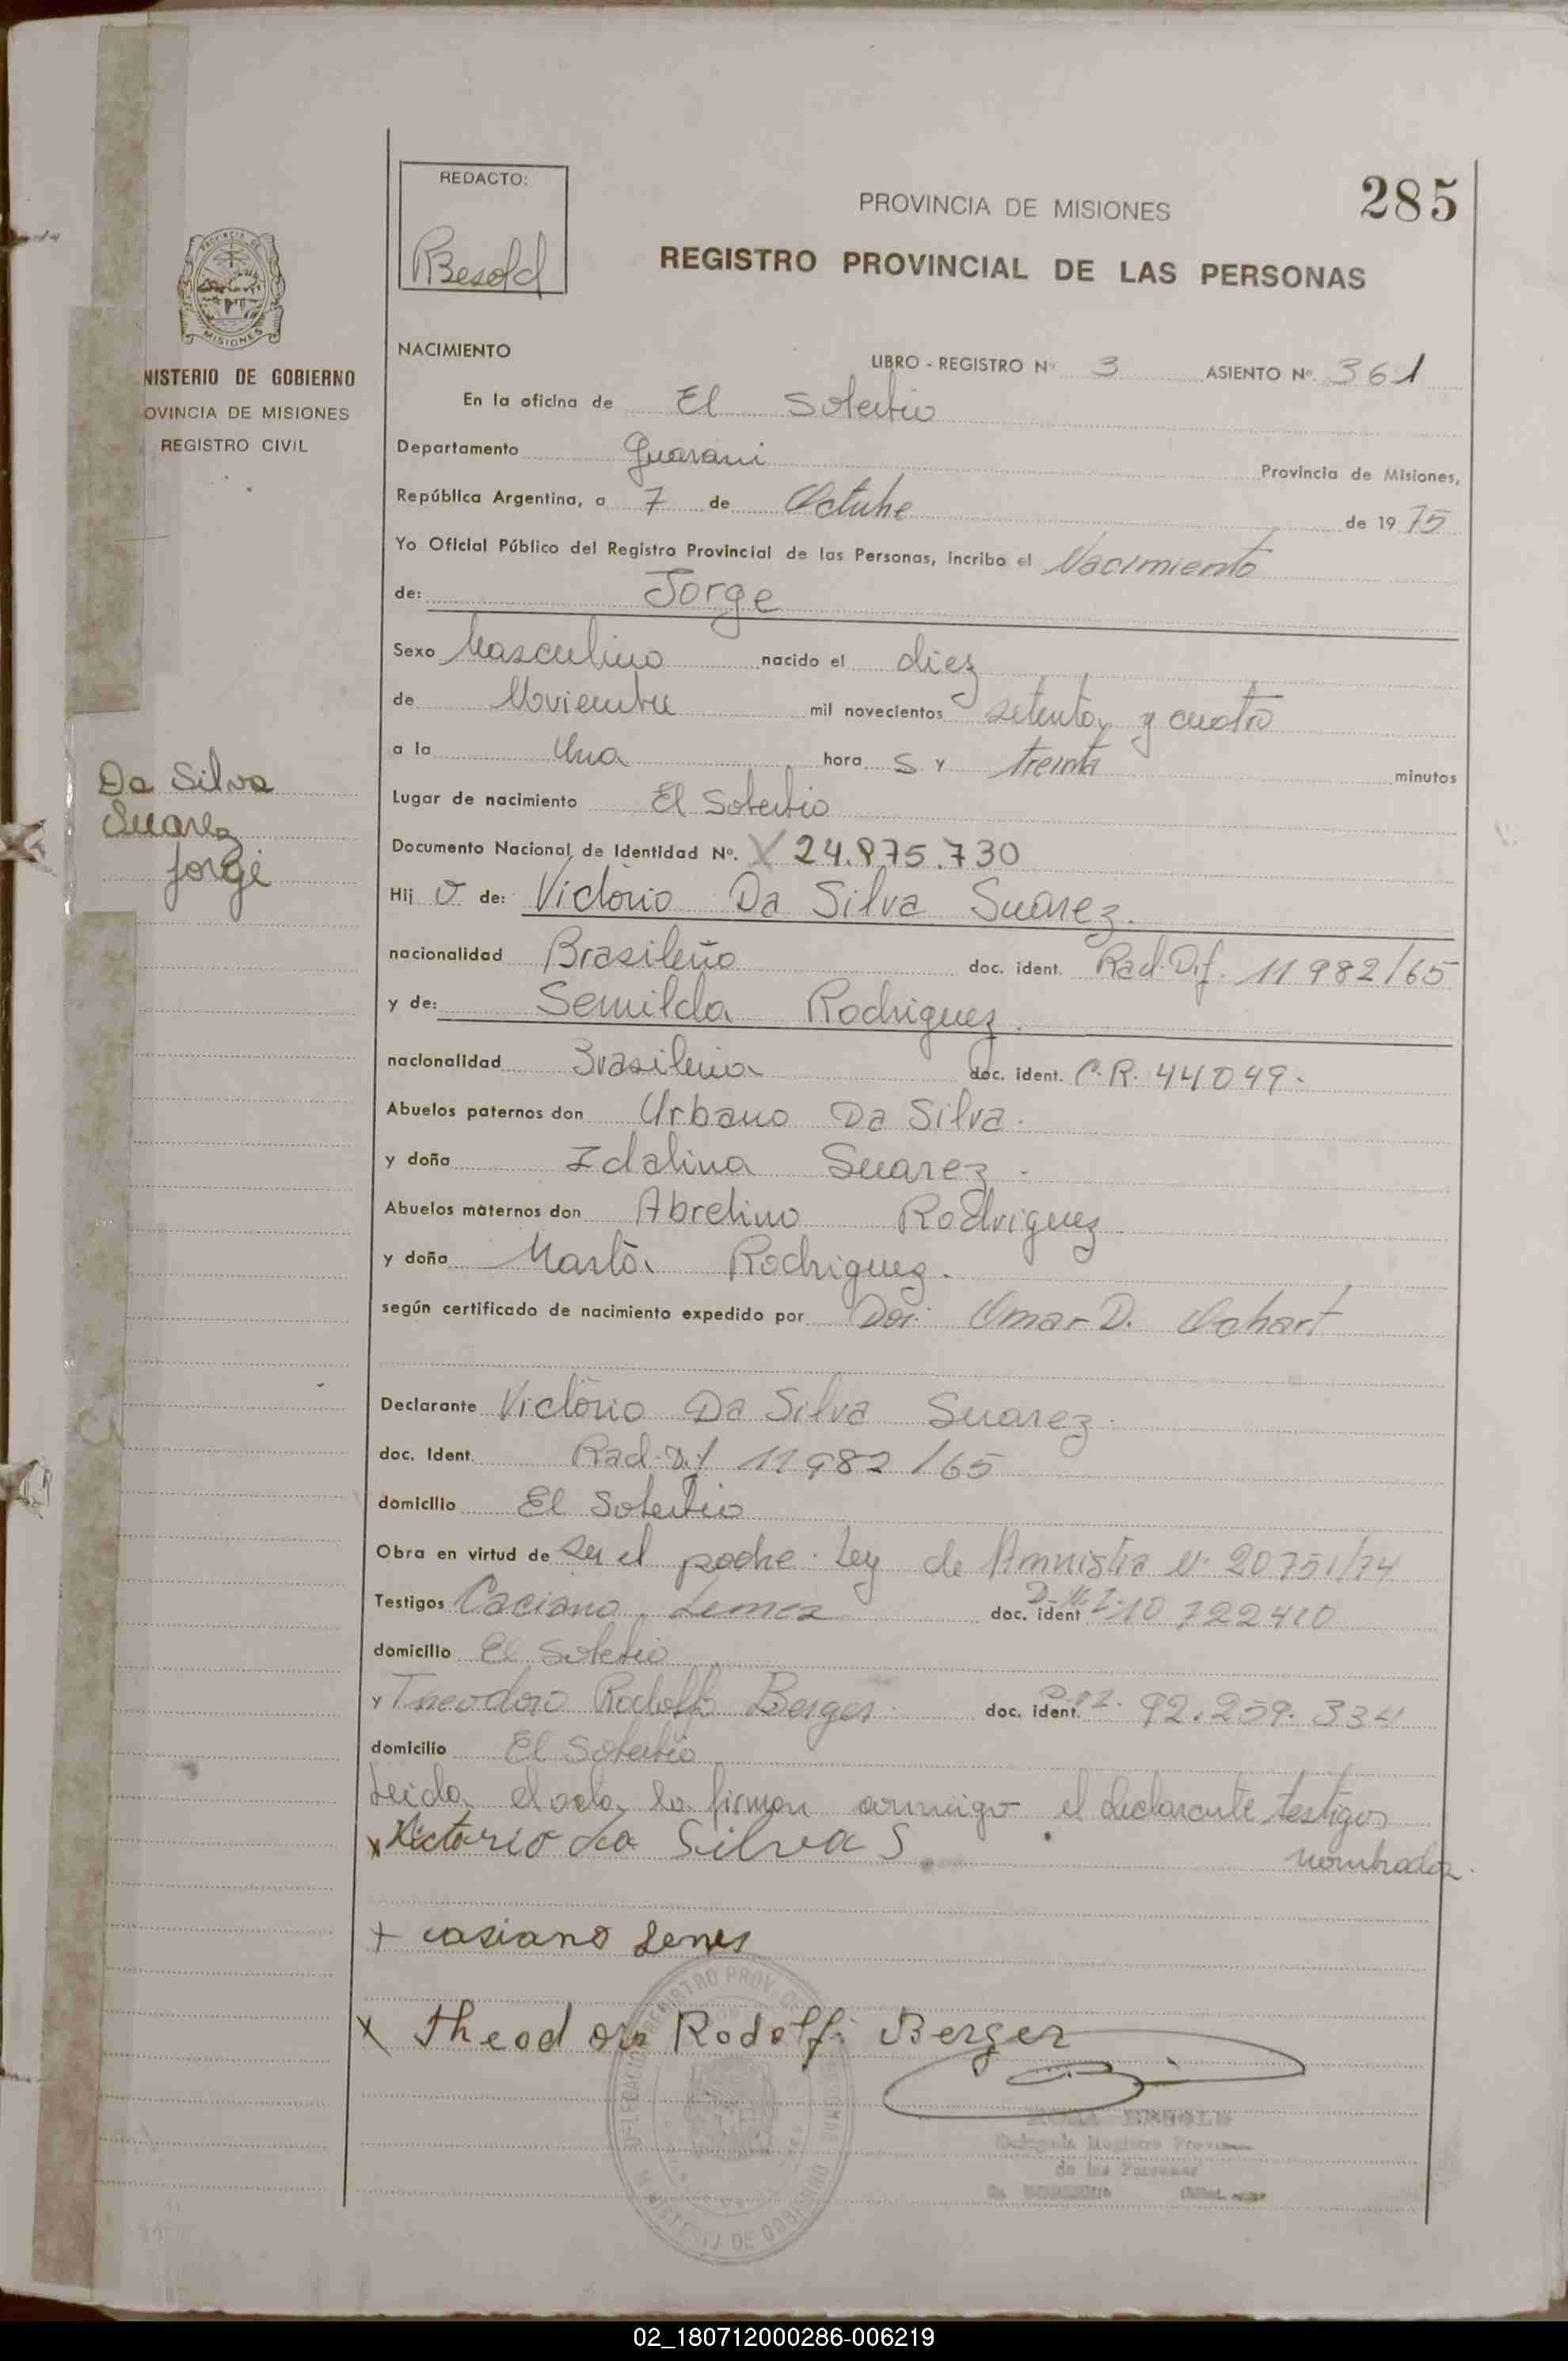 REDACTO:
Besold
285
PROVINCIA DE MISIONES
REGISTRO PROVINCIAL DE LAS PERSONAS
PROVINCIA DE
MISIONES
NISTERIO DE GOBIERNO
OVINCIA DE MISIONES
REGISTRO CIVIL
NACIMIENTO
LIBRO - REGISTRO Nº 3 ASIENTO Nº. 361
En la oficina de El Soberbio
Departamento Guarani Provincia de Misiones,
República Argentina, a 7 de Octubre de 19 75
Yo Oficial Público del Registro Provincial de las Personas, incribo el Nacimiento
de: Jorge
Sexo Masculino nacido el diez
de Noviembre mil novecientos setenta y cuatro
a la Una hora s y treinta minutos
Da Silva
Suarez
Jorge
Lugar de nacimiento El Soberbio
Documento Nacional de Identidad Nº. 24.875.730
Hij o de: Victorio Da Silva Suarez.
nacionalidad Brasileño doc. ident. Rad. Dif. 11982/65
y de: Semilda Rodriguez.
nacionalidad Brasileña doc. ident. C.R. 44049.
Abuelos paternos don Urbano Da Silva.
y doña Idalina Suarez.
Abuelos maternos don Abrelino Rodriguez
y doña Marta Rodriguez.
según certificado de nacimiento expedido por Omar D. Ochart
Declarante Victorio Da Silva Suarez.
doc. Ident. Rad. Dif 11982/65
domicilio El Soberbio
Obra en virtud de ser el padre. Ley de Amnistia Nº 20751/74
Testigos Caciano Lemes doc. ident D.N.I. 10 722410
domicilio El Soberbio
y Theodoro Rodolfo Berger. doc. ident. D.N.I. 92.259.334
domicilio El Soberbio
Leida el acta la firman conmigo el declarante testigos
nombrados.
x Victorio da Silva S
+ casiano Lemes
x Theodoro Rodolfi Berger
REGISTRO PROV. DE
MINISTERIO DE GOBIERNO
BESOLD
Delegada Registro Provincial
de las Personas
02_180712000286-006219